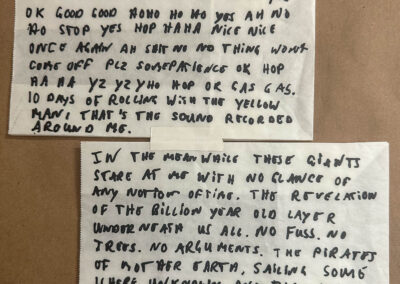 OK GOOD GOOD HOHO HO HO YES AH NO
HO STOP YES HOP HAHA NICE NICE
ONCE AGAIN AH SHIT NO NO THING WONT
COME OFF PLZ SOMEPATIENCE OK HOP
HA HA YZ YZ YHO HOP OR GAS GAS.
10 DAYS OF ROLLING WITH THE YELLOW
MAN, THAT'S THE SOUND RECORDED
AROUND ME.
IN THE MEANWHILE THESE GIANTS
STARE AT ME WITH NO GLANCE OF
ANY NOTION OF TIME. THE REVELATION
OF THE BILLION YEAR OLD LAYER
UNDERNEATH US ALL. NO FUSS. NO
TREES. NO ARGUMENTS. THE PIRATES
OF MOTHER EARTH, SAILING SOME